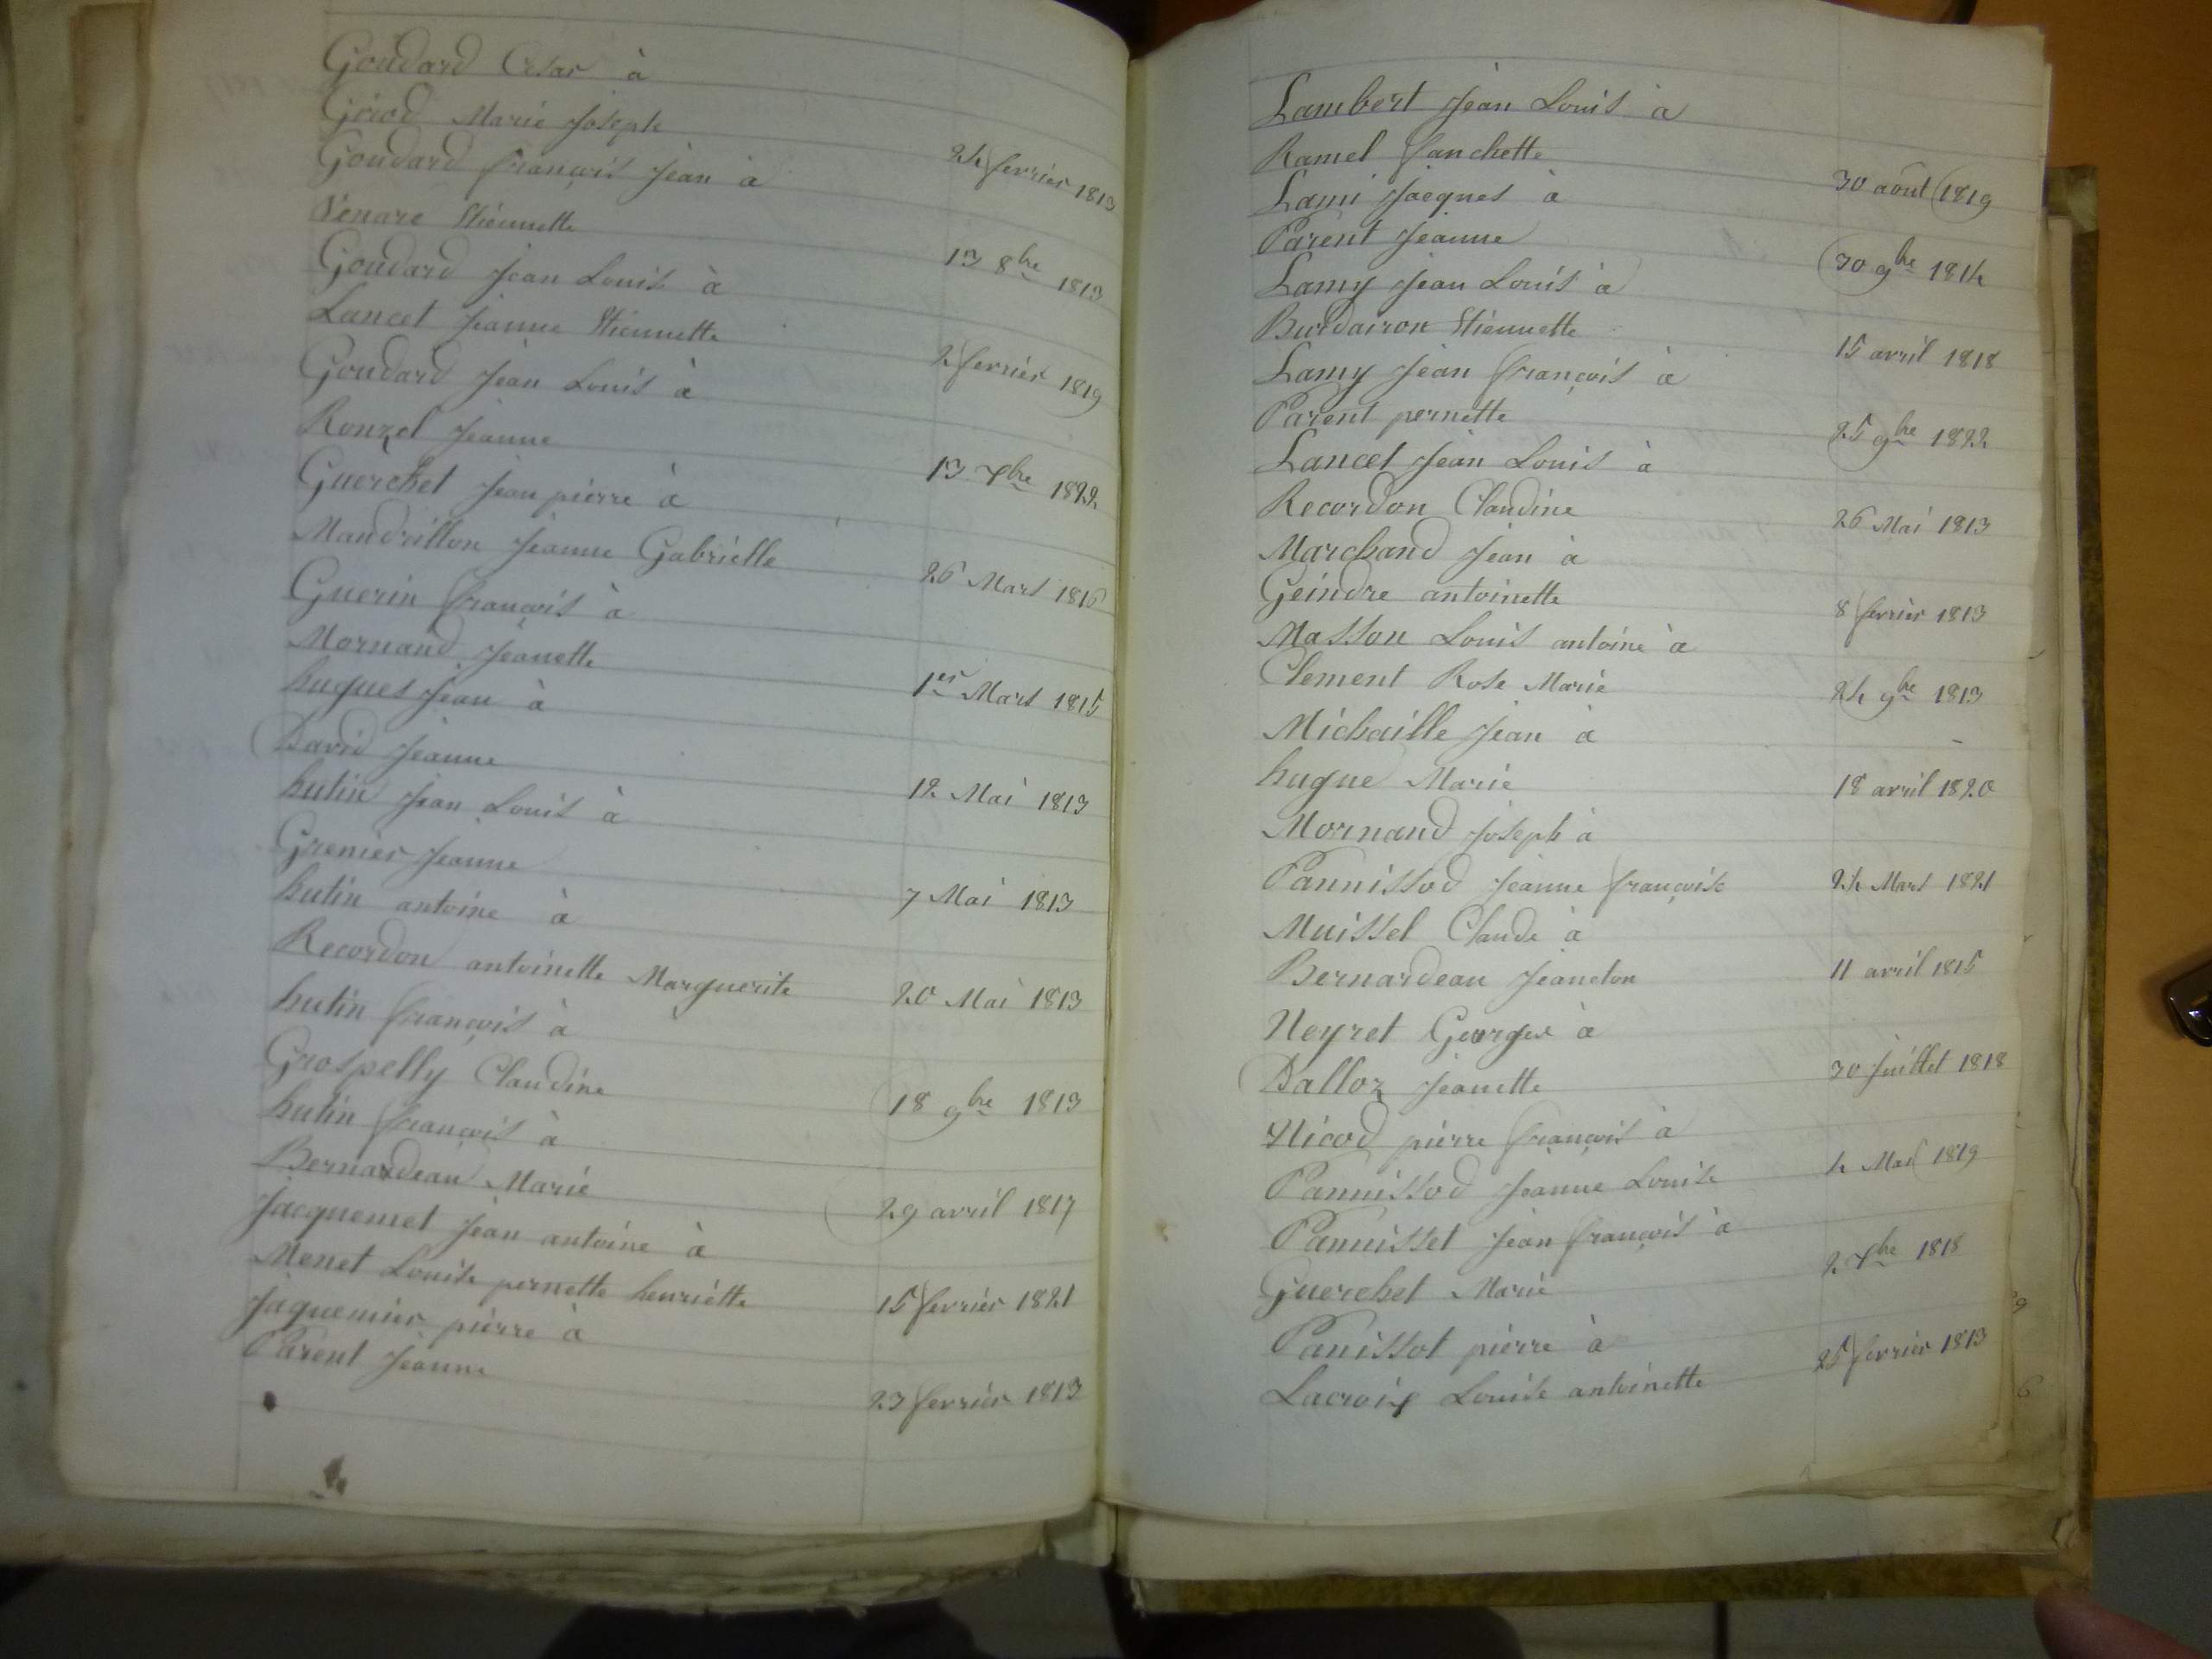 Goudard César à
Girod Marie Joseph 24 fevrier 1813
Goudard françois Jean à
Venare Etiennette 13 8bre 1813
Goudard Jean Louis à
Lancet Jeanne Etiennette 2 fevrier 1819
Goudard Jean Louis à
Ronzel Jeanne 13 7bre 1822
Guerchet Jean pierre à
Mandrillon Jeanne Gabrielle 26 Mars 1816
Guerin françois à
Mornand Jeanette 1er Mars 1815
hugues Jean à
David Jeanne 12 Mai 1813
hutin Jean Louis à
Grenier Jeanne 7 Mai 1813
hutin antoine à
Recordon antoinette Marguerite 20 Mai 1813
hutin françois à
Grospelly Claudine 18 9bre 1813
hutin françois à
Bernardeau Marie 29 avril 1817
Jacquemet Jean antoine à
Menet Louise pernette henriette 15 fevrier 1821
Jaquemier pierre à
Parent Jeanne 23 fevrier 1813
Lambert Jean Louis à
Ramel fanchette 30 août 1819
Lami Jacques à
Parent Jeanne 30 9bre 1814
Lamy Jean Louis à
Burdairon Etiennette 15 avril 1818
Lamy Jean françois à
Parent pernette 25 9bre 1822
Lancet Jean Louis à
Recordon Claudine 26 Mai 1813
Marchand Jean à
Geindre antoinette 8 fevrier 1813
Masson Louis antoine à
Clement Rose Marie 24 9bre 1813
Michaille Jean à
hugue Marie 18 avril 1820
Mornand Joseph à
Pannissod Jeanne françoise 24 Mars 1821
Muissel Claude à
Bernardeau Jeanneton 11 avril 1815
Neyret Georges à
Dalloz Jeanette 30 Juillet 1818
Nicod pierre françois à
Pannissod Jeanne Louise 4 Mai 1819
Pannisset Jean françois à
Guerchet Marie 2 7bre 1818
Panissot pierre à
Lacroix Louise antoinette 25 fevrier 1813